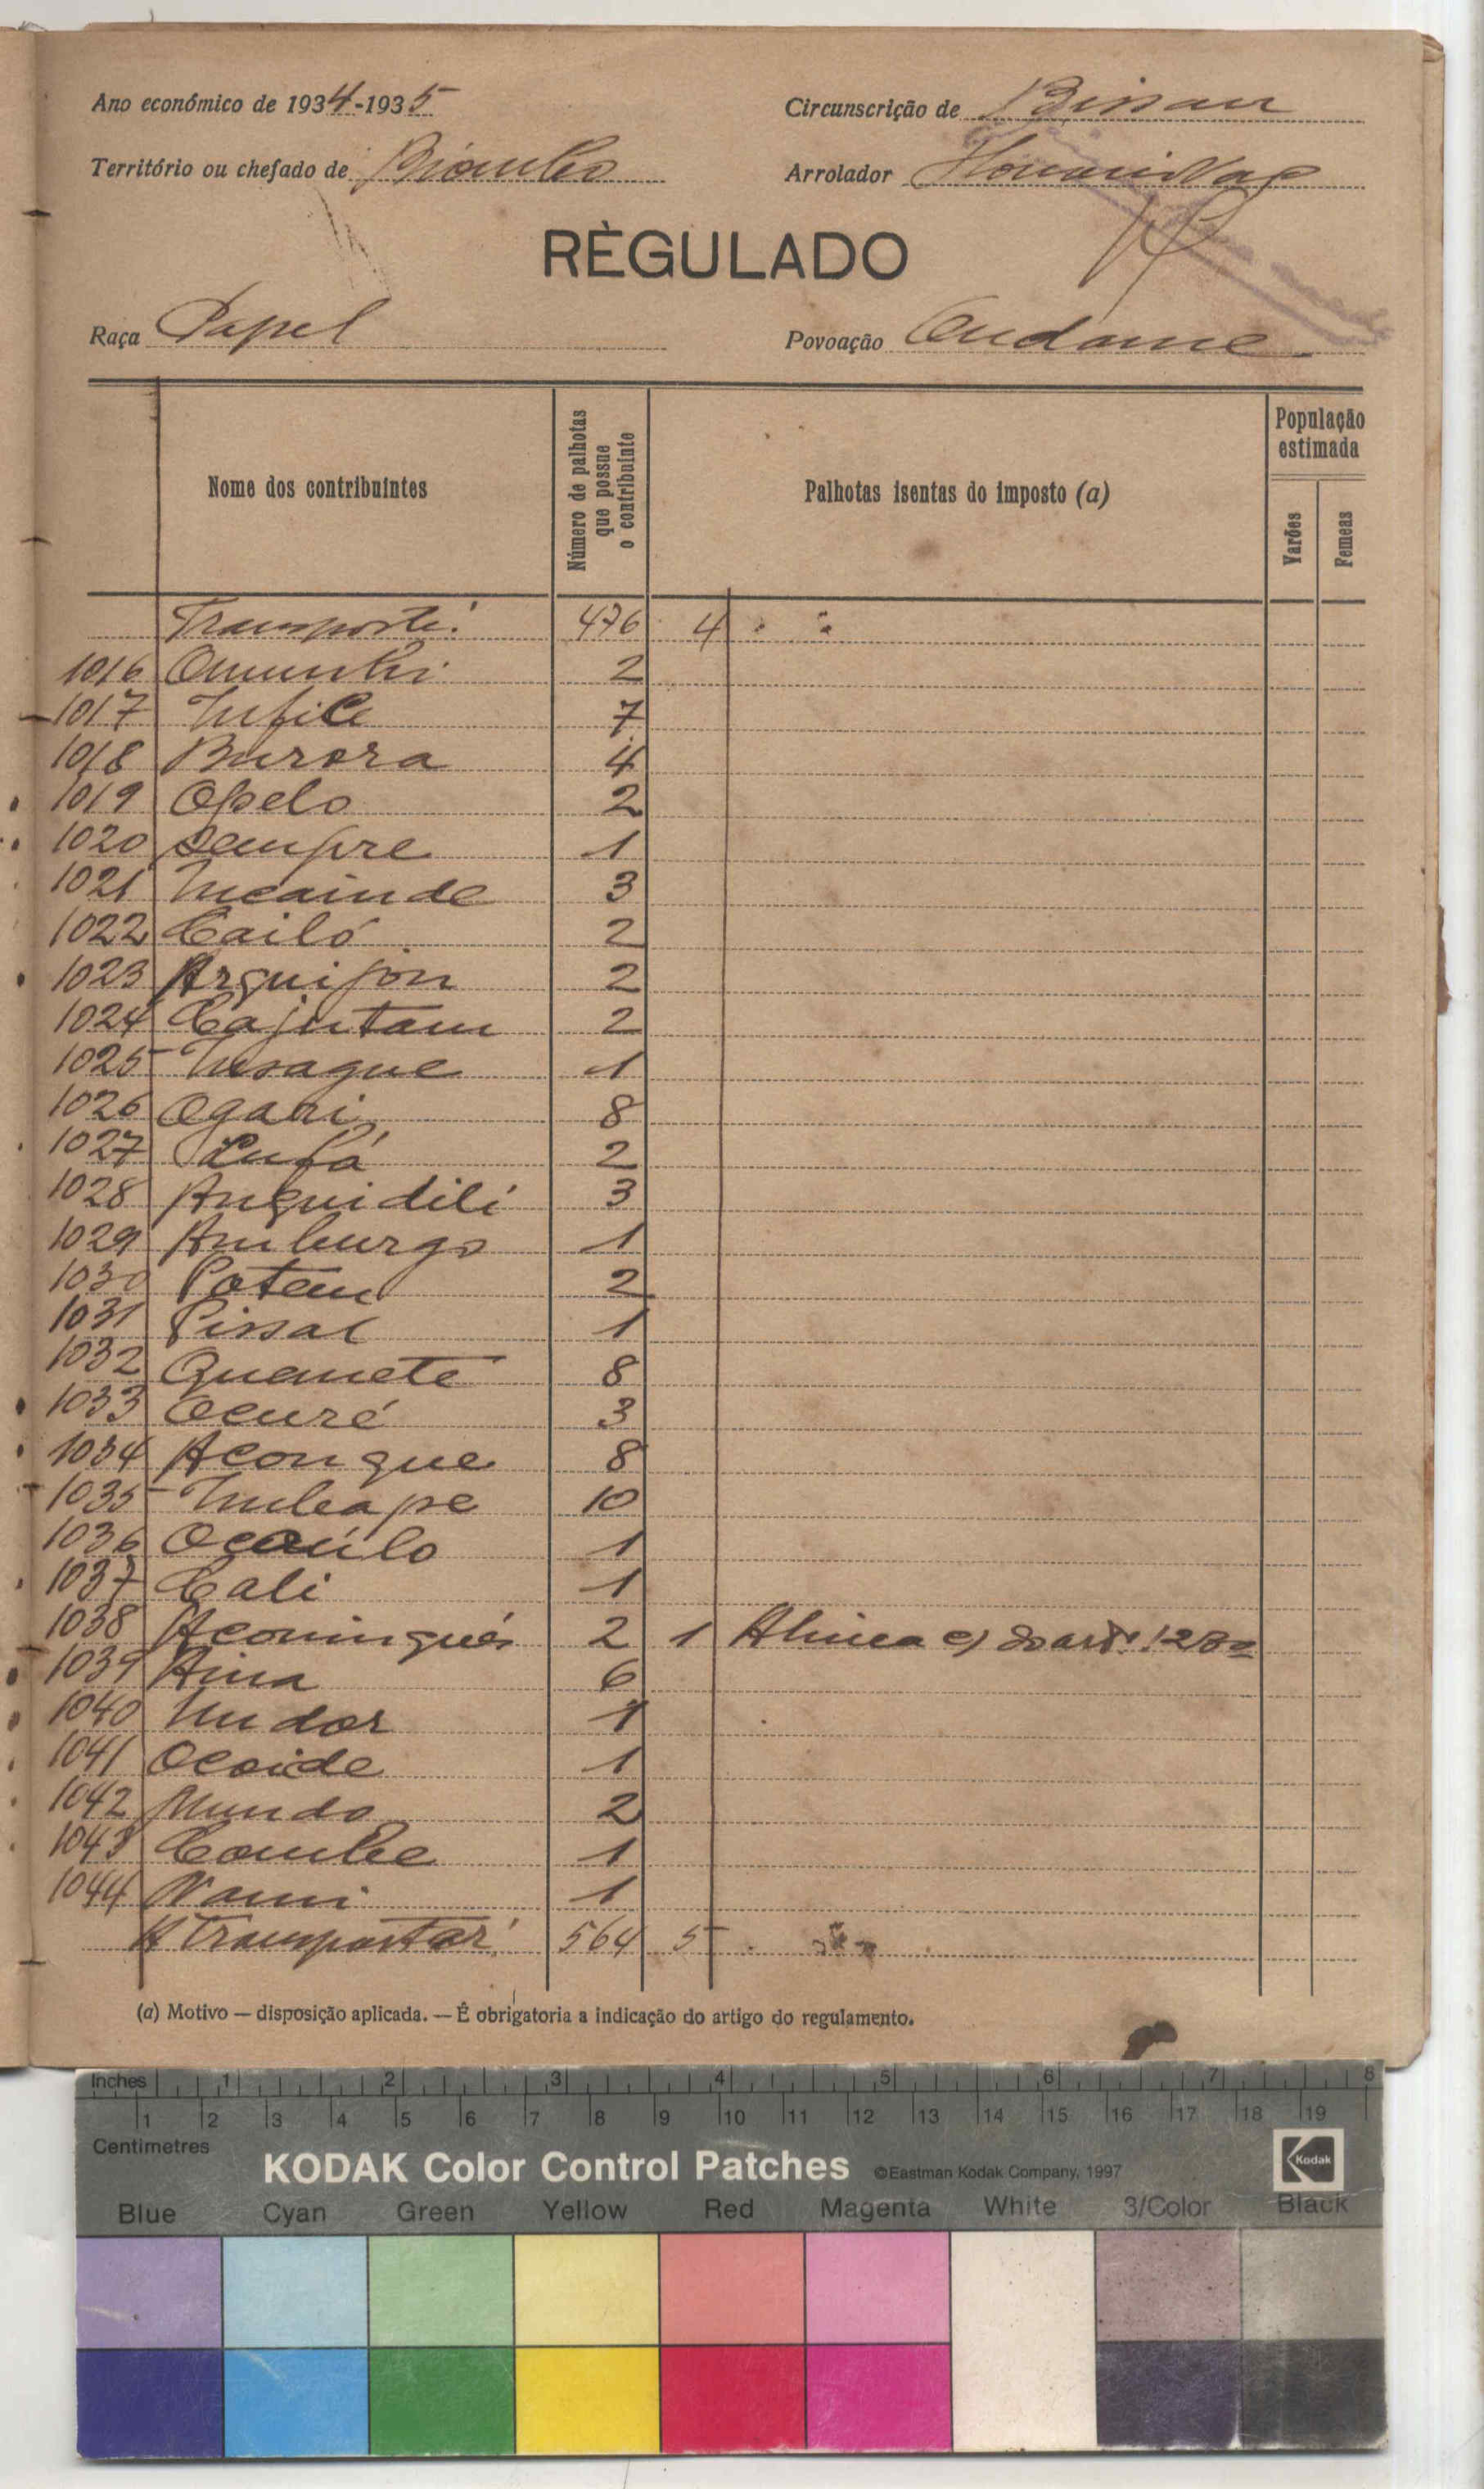 Ano económico de 1934-1935
Circunscrição de Bissau
Território ou chefado de Biombo
Arrolador
RÈGULADO
Raça Papel
Povoação Ondame
Nome dos contribuintes
Número de palhotas que possue o contribuinte
Palhotas isentas do imposto (a)
População estimada
Varões
Femeas
Transporte 476 4
1016 2
1017 7
1018 Burora 4
1019 Opelo 2
1020 Sempre 1
1021 Incainde 3
1022 Cailó 2
1023 Arquijon 2
1024 Cajutam 2
1025 1
1026 Ogari 8
1027 2
1028 Anquidili 3
1029 Amburgo 1
1030 Potem 2
1031 Pissal 1
1032 Quenete 8
1033 Ocuré 3
1034 Aconque 8
1035 10
1036 1
1037 Cali 1
1038 2 1 Alinea e) do artº. 128º
1039 Aina 6
1040 Undor 1
1041 Ocoide 1
1042 Mundo 2
1043 Combe 1
1044 Nami 1
A transportar 564 5
(a) Motivo — disposição aplicada. — É obrigatoria a indicação do artigo do regulamento.
Inches 1 2 3 4 5 6 7 8
1 2 3 4 5 6 7 8 9 10 11 12 13 14 15 16 17 18 19
Centimetres
KODAK Color Control Patches ©Eastman Kodak Company, 1997 Kodak
Blue Cyan Green Yellow Red Magenta White 3/Color Black